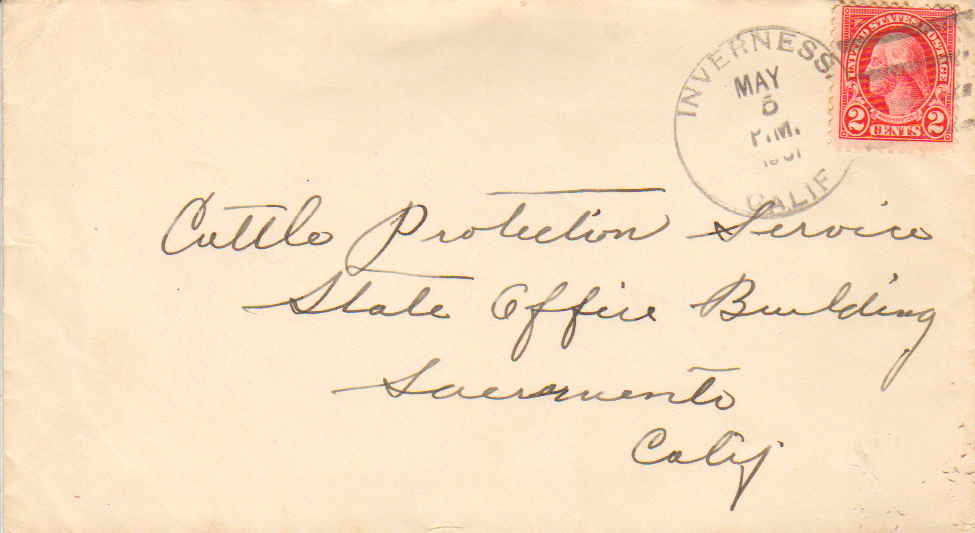 INVERNESS
MAY
6
P.M.
CALIF
UNITED STATES POSTAGE
2 CENTS 2
Cattle Protection Service
State Office Building
Sacramento
Calif